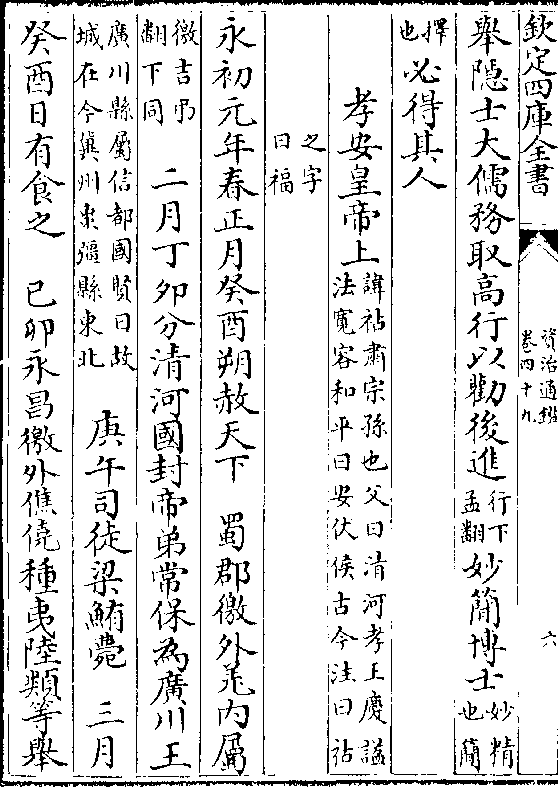 欽定四庫全書
資治通鑑
卷四十九
六
舉隠士大儒務取高行以勸後進行下孟翻妙簡博士妙精也簡
擇也必得其人
孝安皇帝上諱祜肅宗孫也父曰清河孝王慶諡法寛容和平曰安伏侯古今注曰祜
之字曰福
永初元年春正月癸酉朔赦天下　蜀郡徼外羌内屬
徼吉弔翻下同　二月丁夘分清河國封帝弟常保為廣川王
廣川縣屬信都國賢曰故城在今冀州棗彊縣東北　庚午司徒梁鮪薨　三月
癸酉日有食之　己夘永昌徼外僬僥種夷陸類等舉